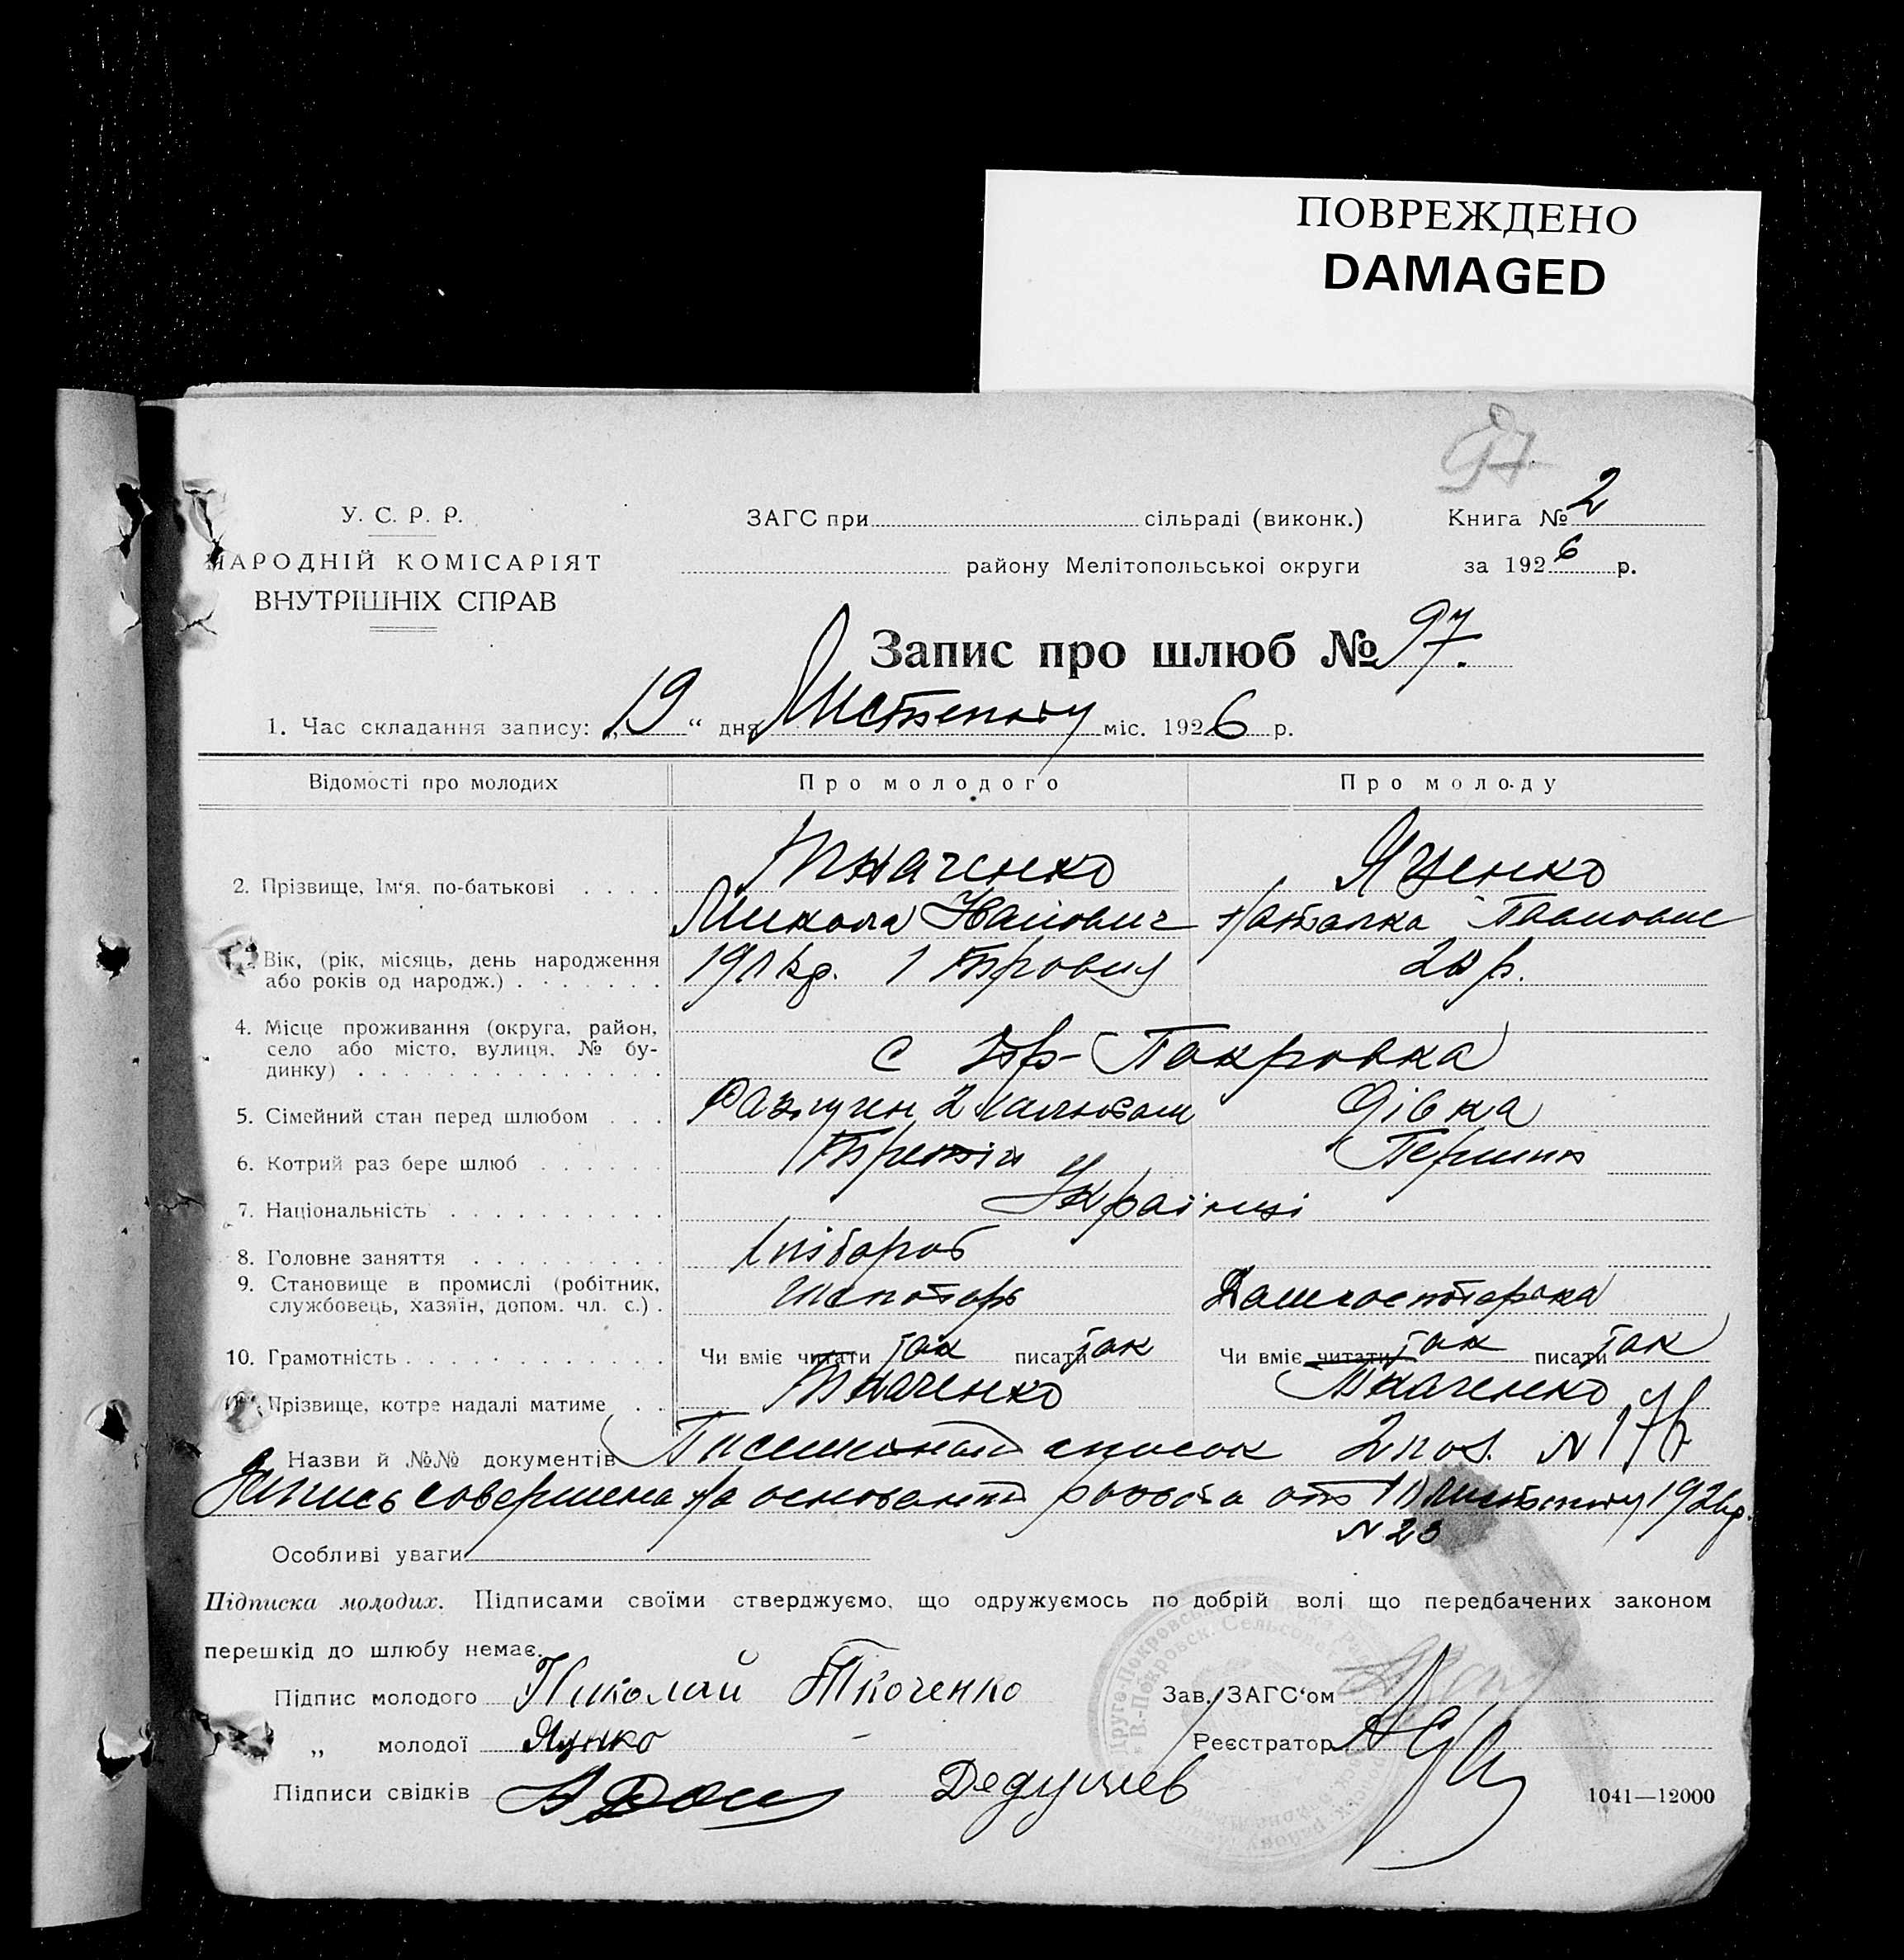 ПОВРЕЖДЕНО
DAMAGED
97
У. С. Р. Р.
НАРОДНІЙ КОМІСАРІЯТ
ВНУТРІШНІХ СПРАВ
ЗАГС при сільраді (виконк.)
району Мелітопольської округи
Книга № 2
за 1926 р.
Запис про шлюб № 97.
1. Час складання запису: „19“ дня Листопаду міс. 1926 р.
Відомості про молодих Про молодого Про молоду
Ткаченко Яценко
2. Прізвище, Ім‘я, по-батькові
Микола Іванович Наталка Павловна
Вік, (рік, місяць, день народження
або років од народж.) 1 20 р.
4. Місце проживання (округа, район,
село або місто, вулиця, № бу-
динку) с Др-Покровка
5. Сімейний стан перед шлюбом Дівка
6. Котрий раз бере шлюб Третій Перший
7. Національність Українці
8. Головне заняття Хлібороб
9. Становище в промислі (робітник,
службовець, хазяїн, допом. чл. с.)
10. Грамотність Чи вміє читати так писати так Чи вміє читати так писати так
Прізвище, котре надалі матиме Ткаченко Ткаченко
Назви й №№ документів список №
Запись совершена на основании развода от Листопаду 1926 р.
N 23
Особливі уваги
Підписка молодих. Підписами своїми стверджуємо, що одружуємось по добрій волі що передбачених законом
перешкід до шлюбу немає.
Підпис молодого Николай Ткоченко
Зав. ЗАГС‘ом
„ молодої Яценко
Реєстратор
Підписи свідків
1041—12000